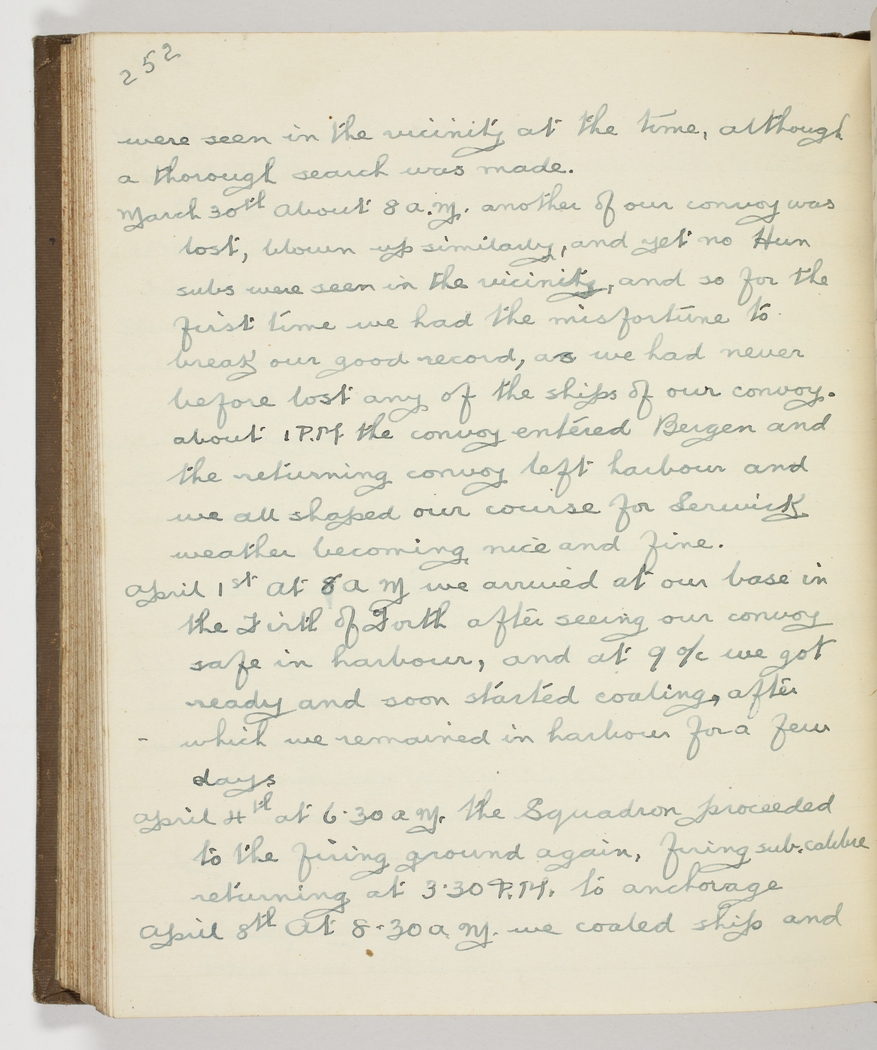 252
were seen in the vicinity at the time, although
a thorough search was made.
March 30th About 8 a.m. another of our convoy was
lost, blown up similarly, and yet no Hun
subs were seen in the vicinity, and so for the
first time we had the misfortune to
break our good record, as we had never
before lost any of the ships of our convoy.
about 1 P.M the convoy entered Bergen and
the returning convoy left harbour and
we all shaped our course for Lerwick
weather becoming nice and fine.
April 1st At 8 a M we arrived at our base in
the Firth of Forth after seeing our convoy
safe in harbour, and at 9 o/c we got
ready and soon started coaling, after
- which we remained in harbour for a few
days
April 4th at 6.30 a M. the Squadron proceeded
to the firing ground again, firing sub. calibre
returning at 3.30 P.M. to anchorage
April 8th At 8-30 a.M. we coaled ship and